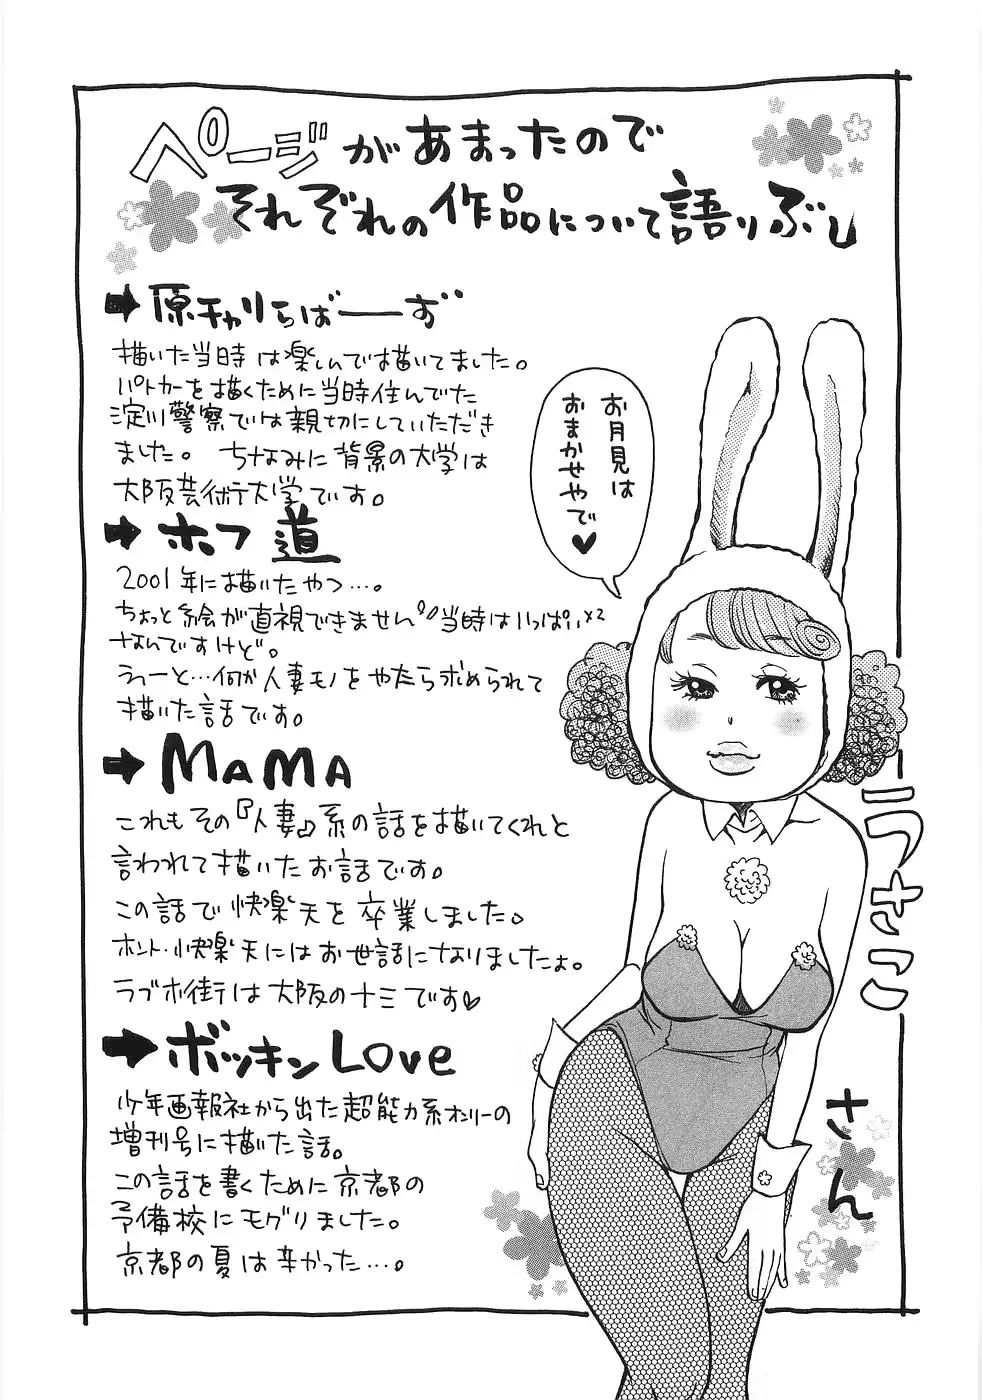 ページがあまったので
それぞれの作品について語りぶし
➡原チャリちばーーず
描いた当時は楽しんで描いてました。
パトカーを描くために当時住んでた
淀川警察では親切にしていただき
ました。 ちなみに背景の大学は
大阪芸術大学です。
➡ホフ道
2001年に描いたやつ…。
ちょっと絵が直視できません 当時はいっぱい×2
なんですけど。
うぃーと…何か人妻モノをやたら求められて
描いた話です。
➡MAMA
これもその『人妻』系の話を描いてくれと
言われて描いたお話です。
この話で快楽天を卒業しました。
ホント・快楽天にはお世話になりましたょ。
ラブホ街は大阪のナミです♡
➡ボッキンLove
少年画報社から出た超能力系オンリーの
増刊号に描いた話。
この話を書くために京都の
予備校にモグりました。
京都の夏は辛かった…。
お月見は
おまかせやで♥
ラさこ
さん